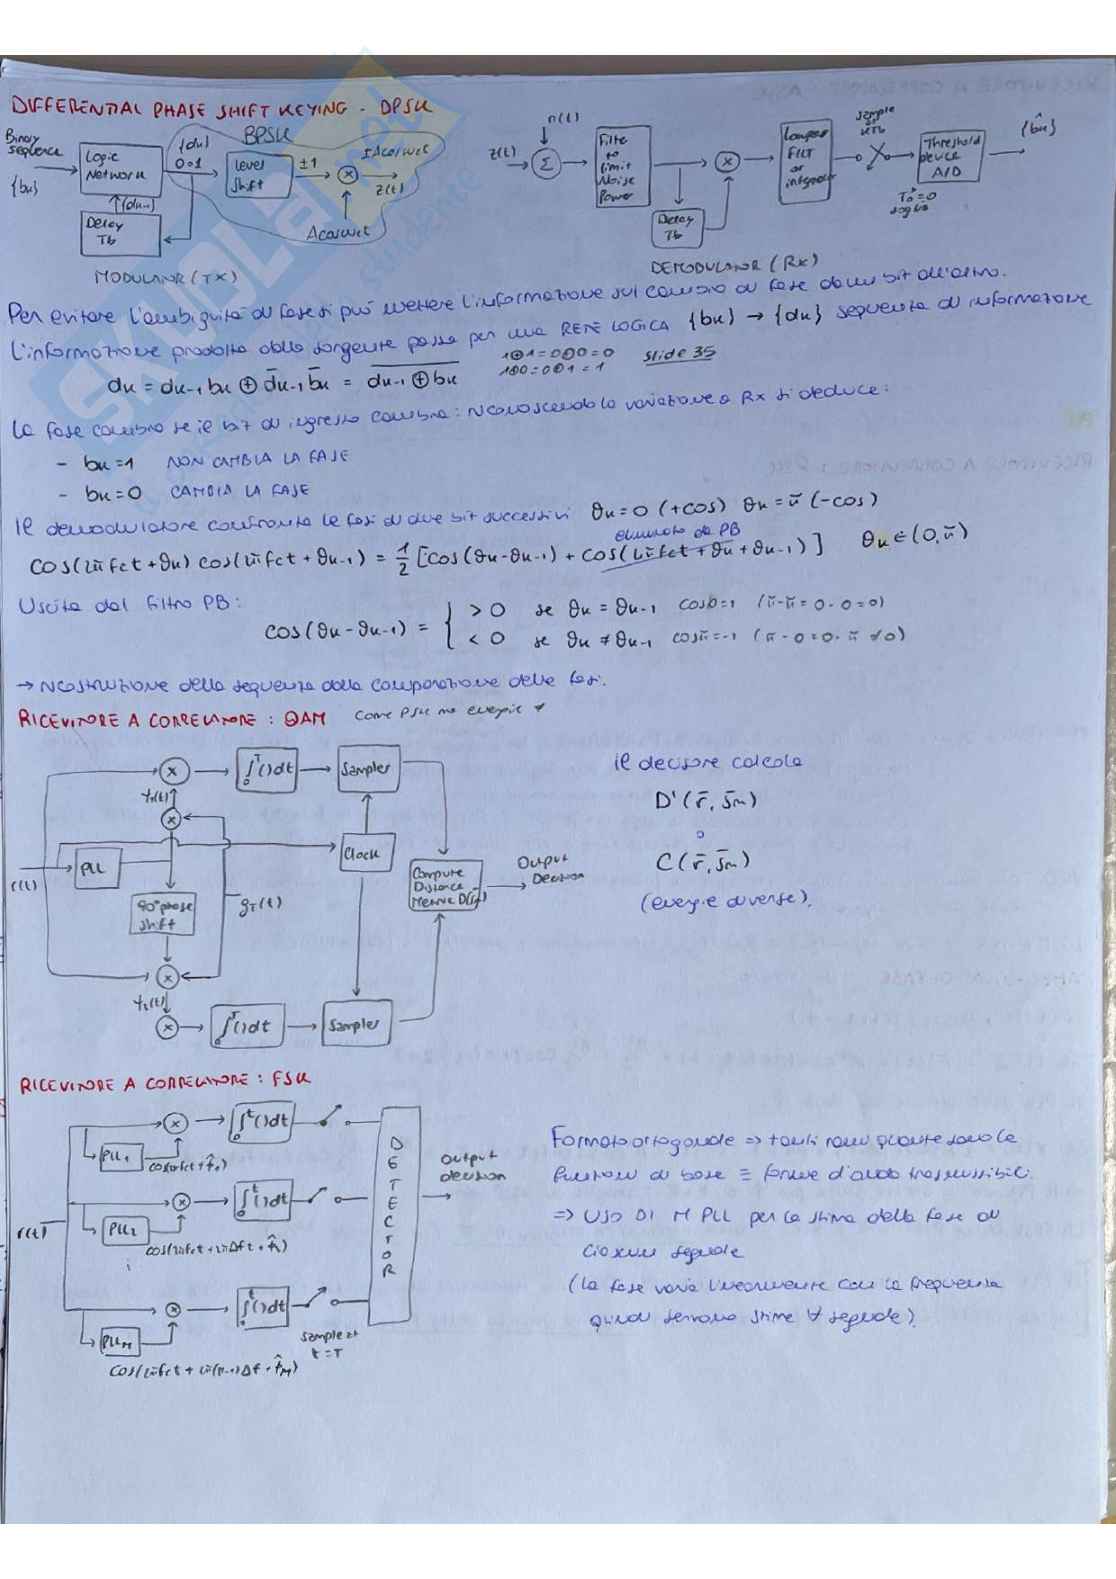 DIFFERENTIAL PHASE SHIFT KEYING - DPSK
Binary sequence {bk}
Logic Network
{dk} 0-1
BPSK
Level shift
±1
±Acosωct
z(t)
Acosωct
{dk-1}
Delay Tb
MODULATOR (TX)
z(t)
n(t)
Σ
Filter to limit Noise Power
Delay Tb
Lowpass FILT or integrator
sample at kTb
Threshold device A/D
{b̂k}
DEMODULATOR (RX)
Per evitare l'ambiguità di fase si può mettere l'informazione sul cambio di fase da un bit all'altro.
L'informazione prodotta dalla sorgente passa per una RETE LOGICA {bk} → {dk} sequenza di informazione
dk = dk-1 bk ⊕ d̄k-1 b̄k = \overline{dk-1 ⊕ bk}
1⊕1=0⊕0=0
1⊕0=0⊕1=1
slide 35
La fase cambia se il bit di ingresso cambia: riconoscendo la variazione a Rx si deduce:
- bk=1 NON CAMBIA LA FASE
- bk=0 CAMBIA LA FASE
Il demodulatore confronta le fasi di due bit successivi θk=0 (+cos) θk=π (-cos)
eliminato da PB
cos(2πfct+θk) cos(2πfct+θk-1) = 1/2 [cos(θk-θk-1) + cos(4πfct+θk+θk-1)] θk∈(0,π)
Uscita dal filtro PB:
cos(θk-θk-1) = { >0 se θk=θk-1 cos0=1 (π-π=0-0=0)
<0 se θk≠θk-1 cosπ=-1 (π-0=0-π≠0)
→ ricostruzione della sequenza dalla comparazione delle fasi.
RICEVITORE A CORRELATORE: QAM come PSK ma energie ≠
∫₀ᵀ()dt
Sampler
ψ1(t)
PLL
Clock
r(t)
90° phase shift
gT(t)
Compute Distance Metrics D(sm)
Output Decision
ψ2(t)
∫₀ᵀ()dt
Sampler
il decisore calcola
D'(r̄, s̄m)
o
C(r̄, s̄m)
(energie diverse).
RICEVITORE A CORRELATORE: FSK
∫₀ᵗ()dt
PLL1
cos(2πfct+φ̂1)
∫₀ᵗ()dt
r(t)
PLL2
cos(2πfct+2πΔft+φ̂2)
∫₀ᵗ()dt
PLLM
sample at t=T
DETECTOR
output decision
Formato ortogonale => tanti rami quante sono le
funzioni di base ≡ forme d'onda trasmissibili.
=> USO DI M PLL per la stima della fase di
ciascun segnale
(la fase varia linearmente con la frequenza
quindi servono stime ∀ segnale).
SKUOLA.net